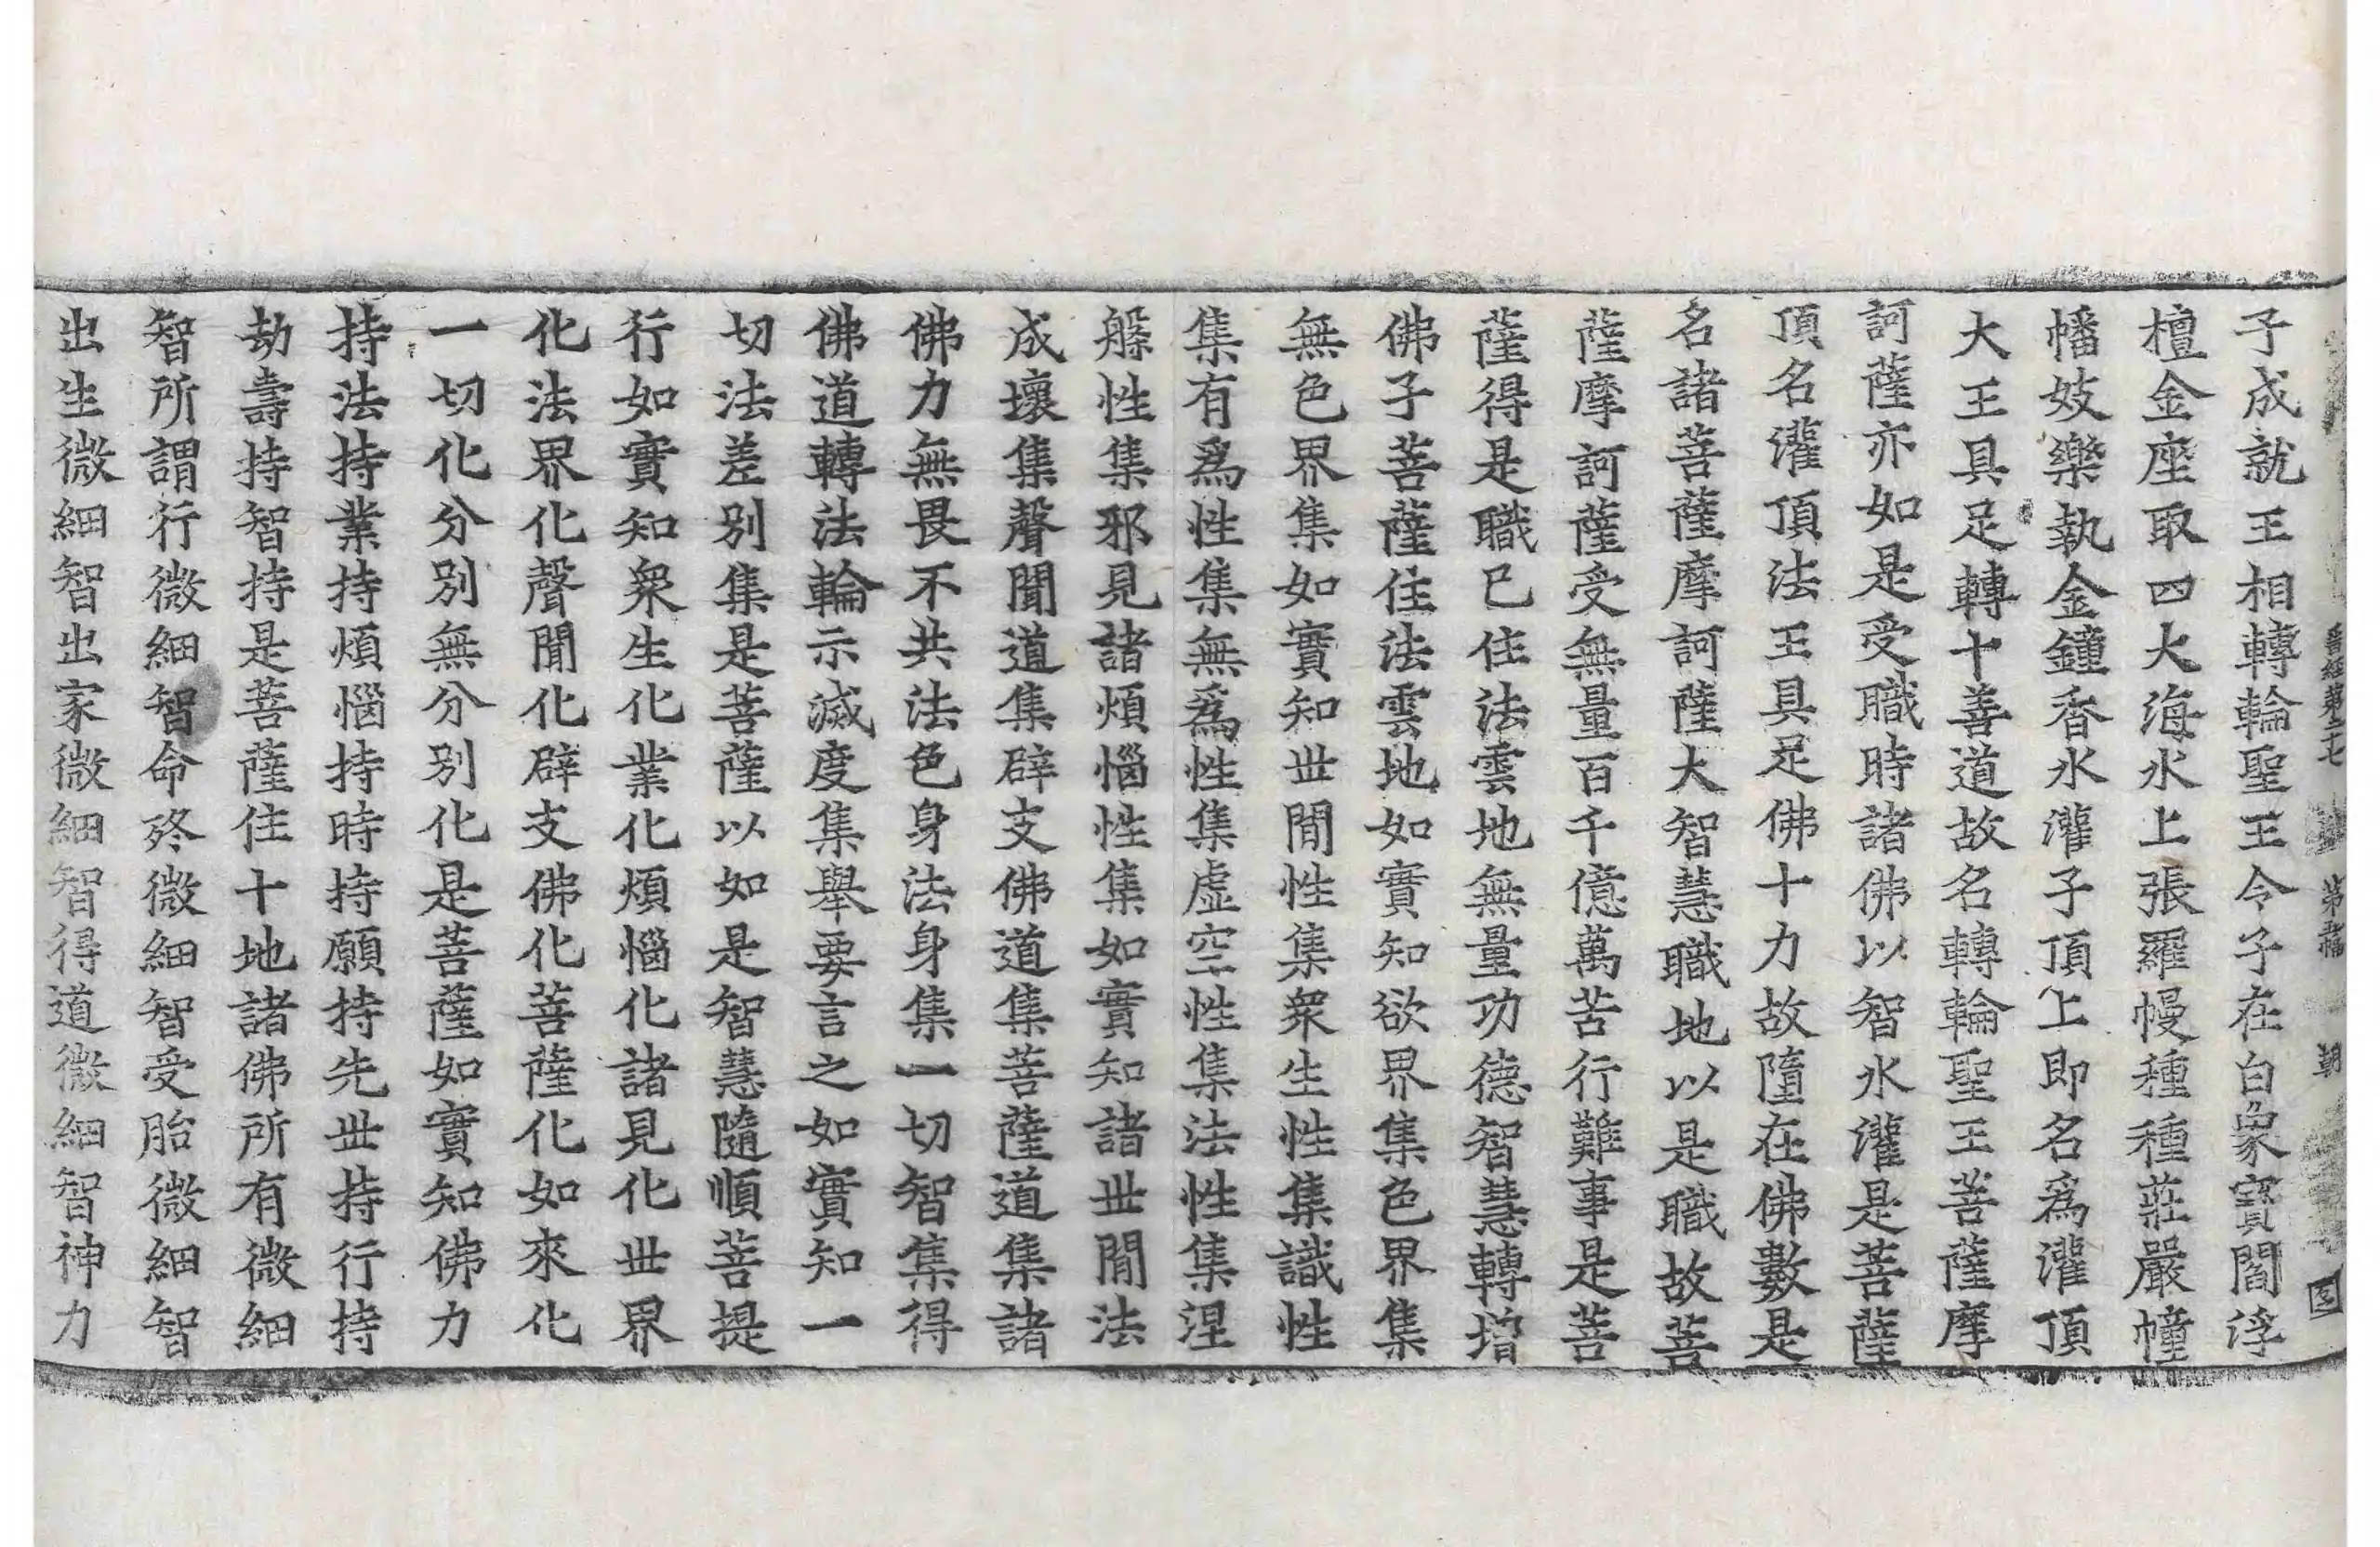 晉經第二十七 第五幅 朝
子成就王相轉輪聖王令子在白象寶閻浮
檀金座取四大海水上張羅幔種種莊嚴幢
幡妓樂執金鐘香水灌子頂上即名爲灌頂
大王具足轉十善道故名轉輪聖王菩薩摩
訶薩亦如是受職時諸佛以智水灌是菩薩
頂名灌頂法王具足佛十力故墮在佛數是
名諸菩薩摩訶薩大智慧職地以是職故菩
薩摩訶薩受無量百千億萬苦行難事是菩
薩得是職已住法雲地無量功德智慧轉增
佛子菩薩住法雲地如實知欲界集色界集
無色界集如實知世間性集衆生性集識性
集有爲性集無爲性集虛空性集法性集涅
槃性集邪見諸煩惱性集如實知諸世間法
成壞集聲聞道集辟支佛道集菩薩道集諸
佛力無畏不共法色身法身集一切智集得
佛道轉法輪示滅度集舉要言之如實知一
切法差別集是菩薩以如是智慧隨順菩提
行如實知衆生化業化煩惱化諸見化世界
化法界化聲聞化辟支佛化菩薩化如來化
一切化分別無分別化是菩薩如實知佛力
持法持業持煩惱持時持願持先世持行持
劫壽持智持是菩薩住十地諸佛所有微細
智所謂行微細智命終微細智受胎微細智
出生微細智出家微細智得道微細智神力